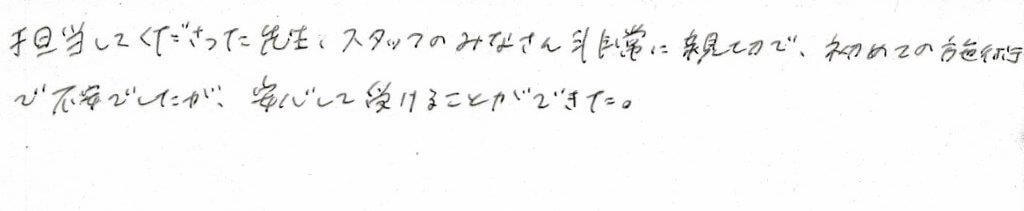 担当してくださった先生、スタッフのみなさん非常に親切で、初めての施術
で不安でしたが、安心して受けることができた。